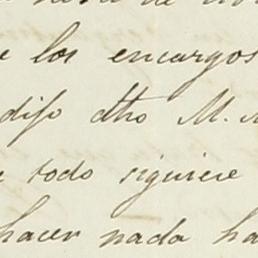 e los encargos
difo dho M. A
e todo siguiese
hacer nada ha